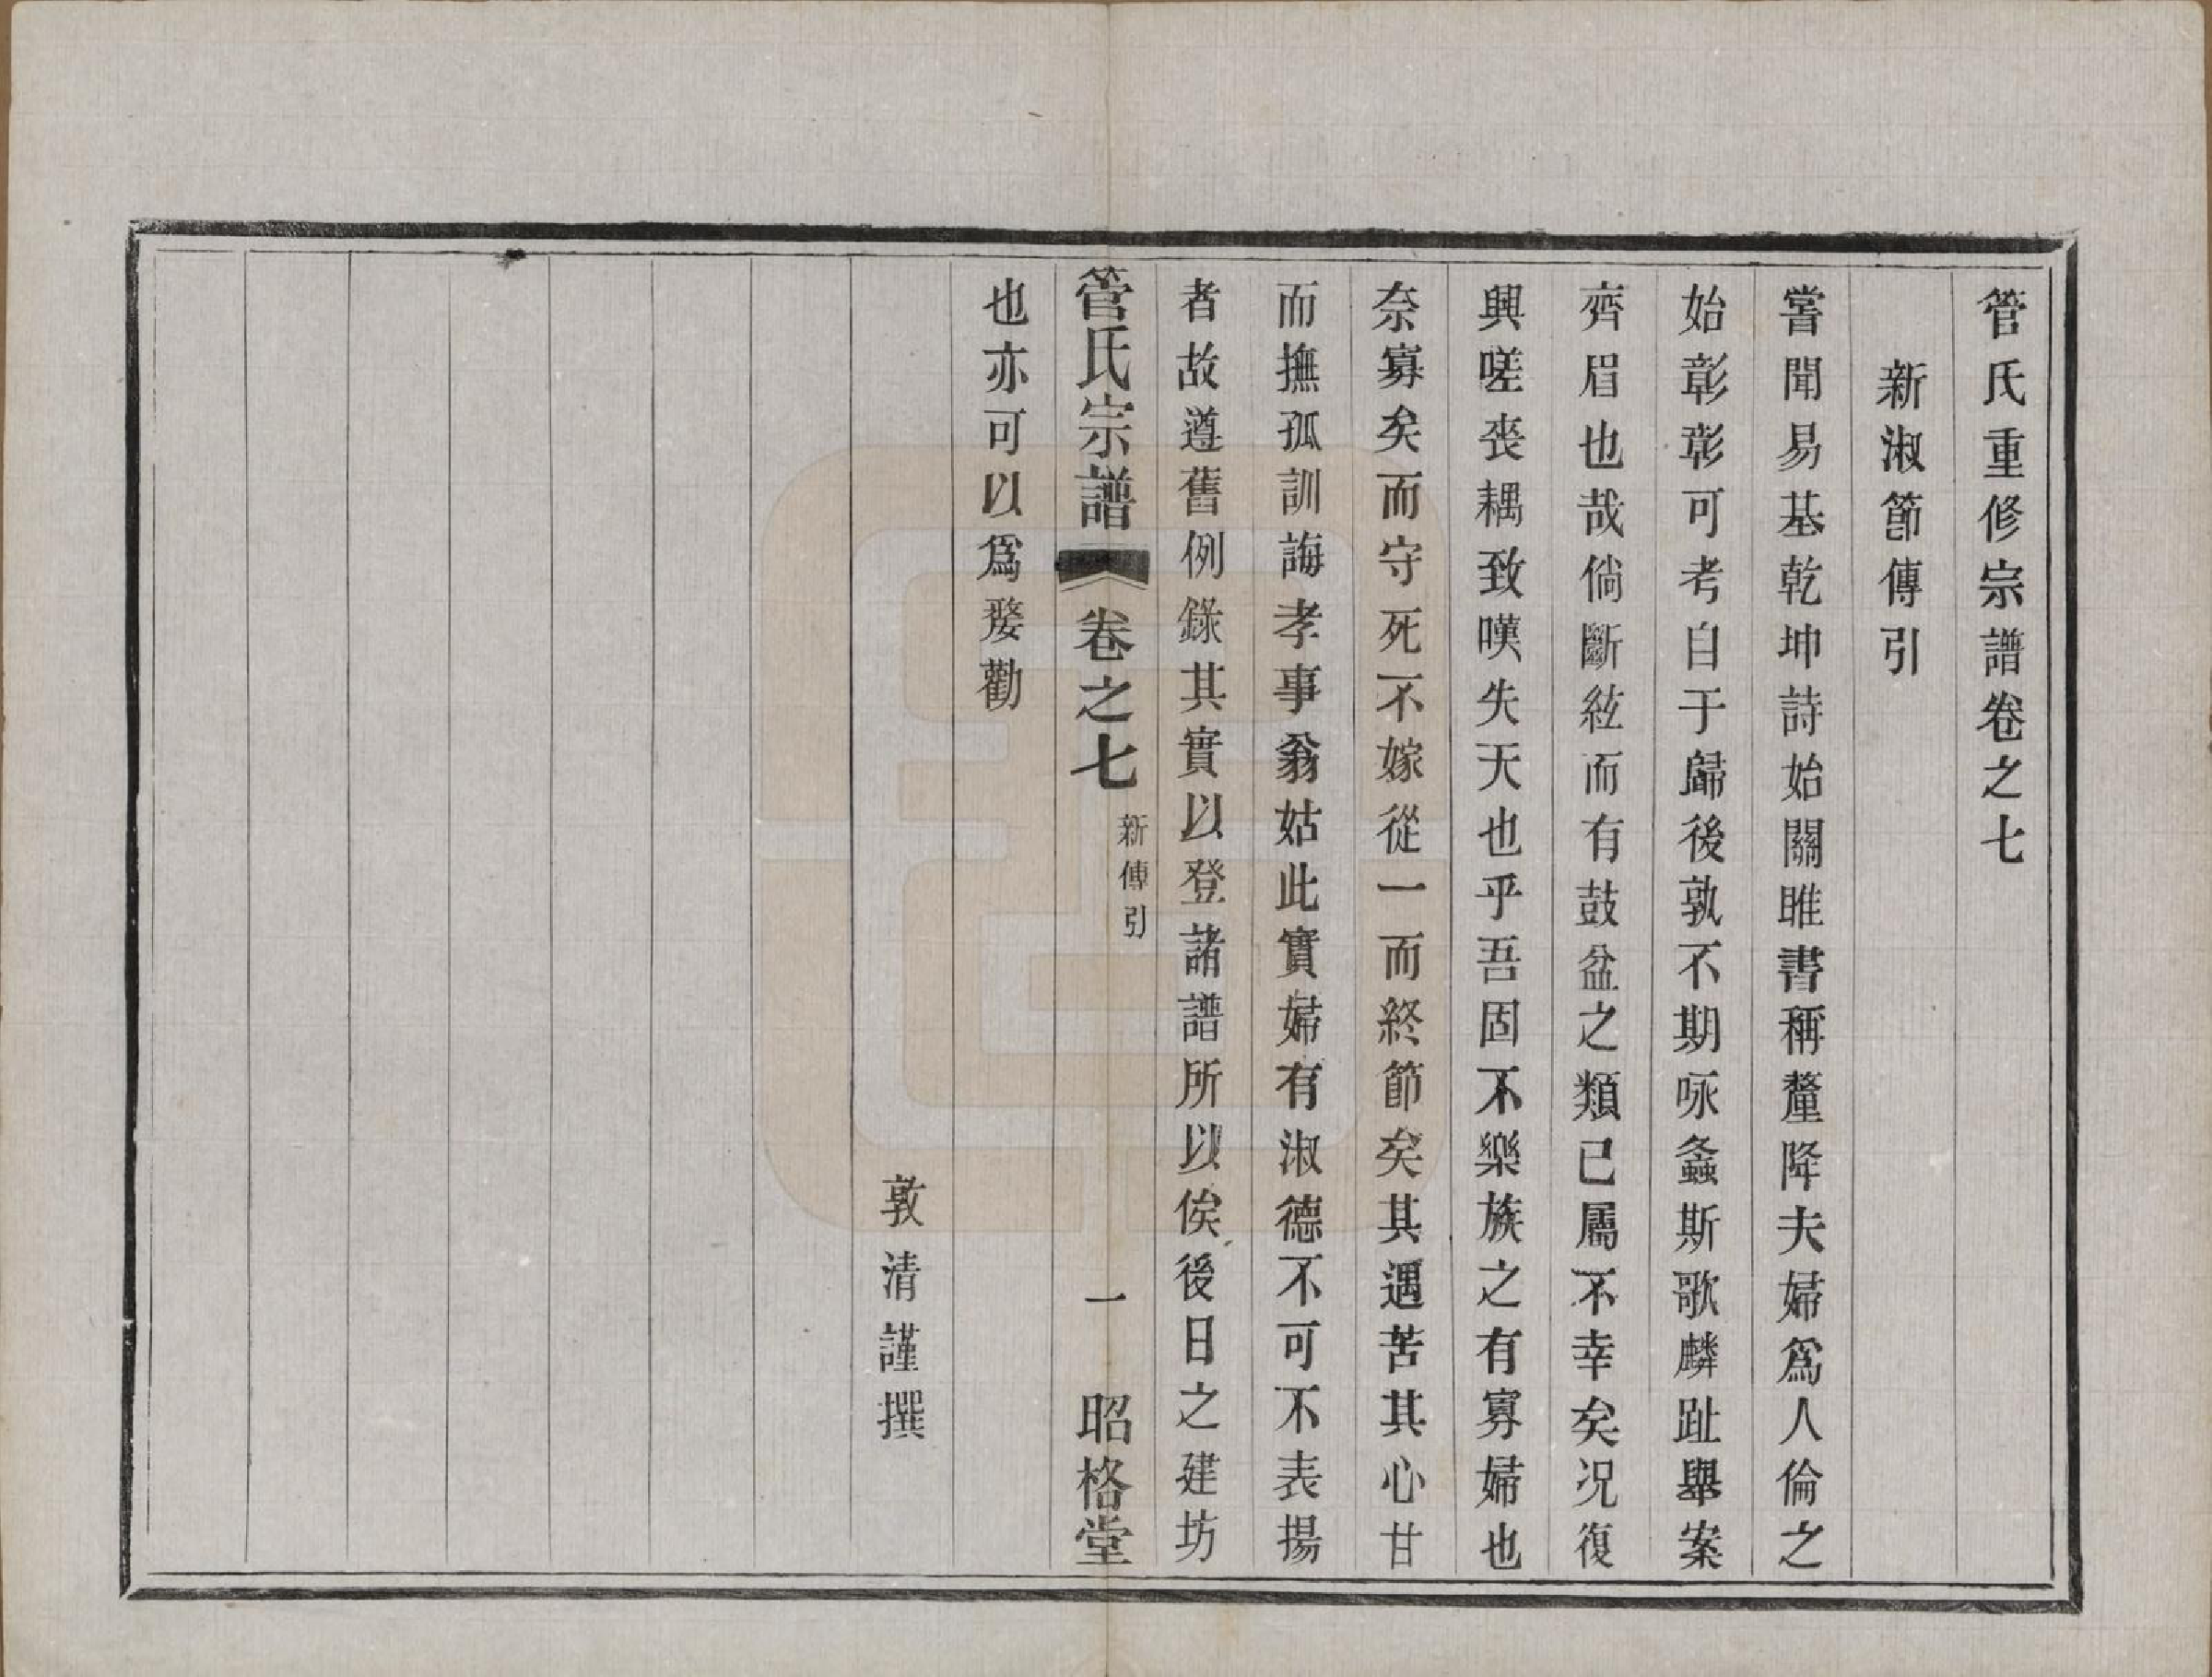 管氏重修宗譜卷之七
新淑節傳引
嘗聞易基乾坤詩始關雎書稱釐降夫婦爲人倫之
始彰彰可考自于歸後孰不期咏螽斯歌麟趾舉案
齊眉也哉倘斷絃而有鼓盆之類已屬不幸矣况復
興嗟喪耦致嘆失天也乎吾固不樂族之有寡婦也
奈寡矣而守死不嫁從一而終節矣其遇苦其心甘
而撫孤訓誨孝事翁姑此實婦有淑德不可不表揚
者故遵舊例錄其實以登諸譜所以俟後日之建坊
管氏宗譜 卷之七 新傳引 一 昭格堂
也亦可以爲婺勸
敦清謹撰